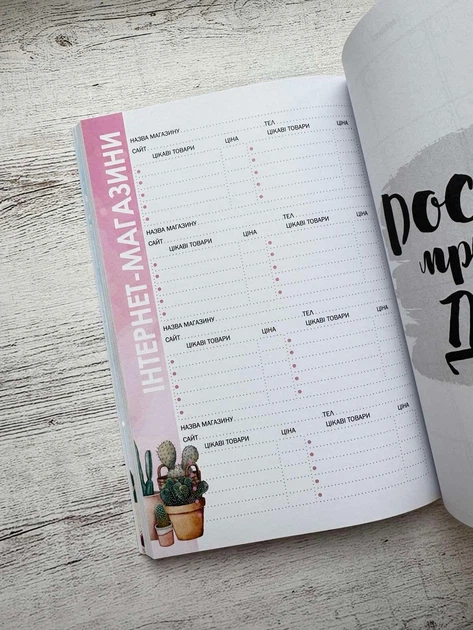 ІНТЕРНЕТ-МАГАЗИНИ
НАЗВА МАГАЗИНУ ТЕЛ
САЙТ ЦІКАВІ ТОВАРИ ЦІНА ЦІКАВІ ТОВАРИ ЦІНА
НАЗВА МАГАЗИНУ ТЕЛ
САЙТ ЦІКАВІ ТОВАРИ ЦІНА ЦІКАВІ ТОВАРИ ЦІНА
НАЗВА МАГАЗИНУ ТЕЛ
САЙТ ЦІКАВІ ТОВАРИ ЦІНА ЦІКАВІ ТОВАРИ ЦІНА
НАЗВА МАГАЗИНУ ТЕЛ
САЙТ ЦІКАВІ ТОВАРИ ЦІНА ЦІКАВІ ТОВАРИ ЦІНА